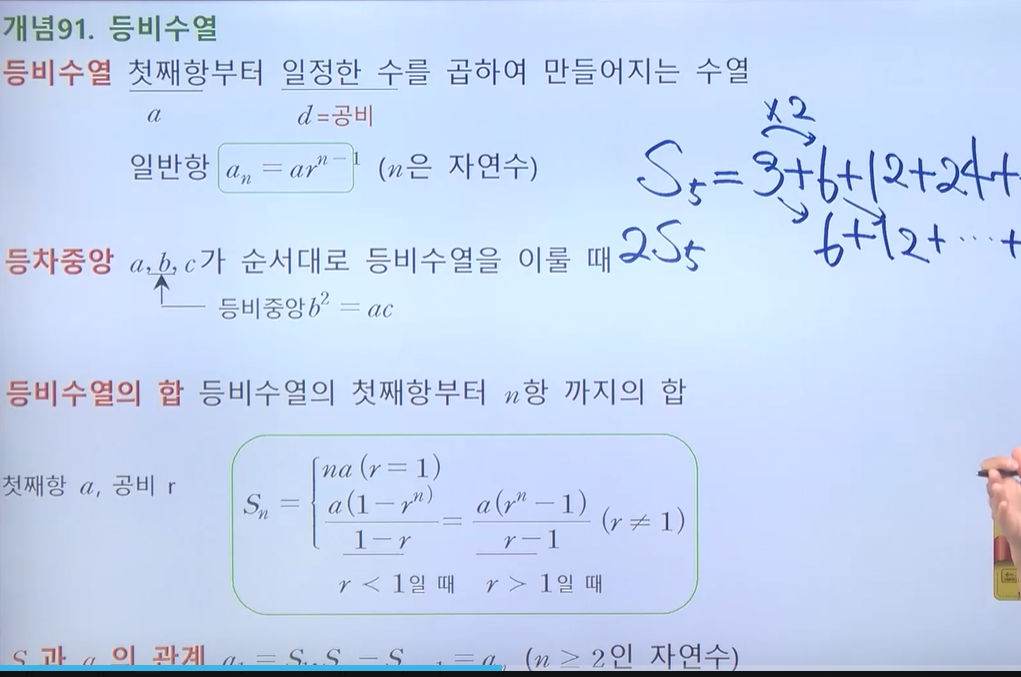 개념91. 등비수열
등비수열 첫째항부터 일정한 수를 곱하여 만들어지는 수열
a d=공비
일반항 aₙ = arⁿ⁻¹ (n은 자연수)
×2
S₅=3+6+12+24+
2S₅ 6+12+…+
등차중앙 a, b, c가 순서대로 등비수열을 이룰 때
등비중앙b² = ac
등비수열의 합 등비수열의 첫째항부터 n항 까지의 합
첫째항 a, 공비 r
Sₙ = { na (r = 1)
a(1-rⁿ)/(1-r) = a(rⁿ-1)/(r-1) (r ≠ 1)
r < 1일 때 r > 1일 때
S 과 a 의 관계 (n ≥ 2인 자연수)